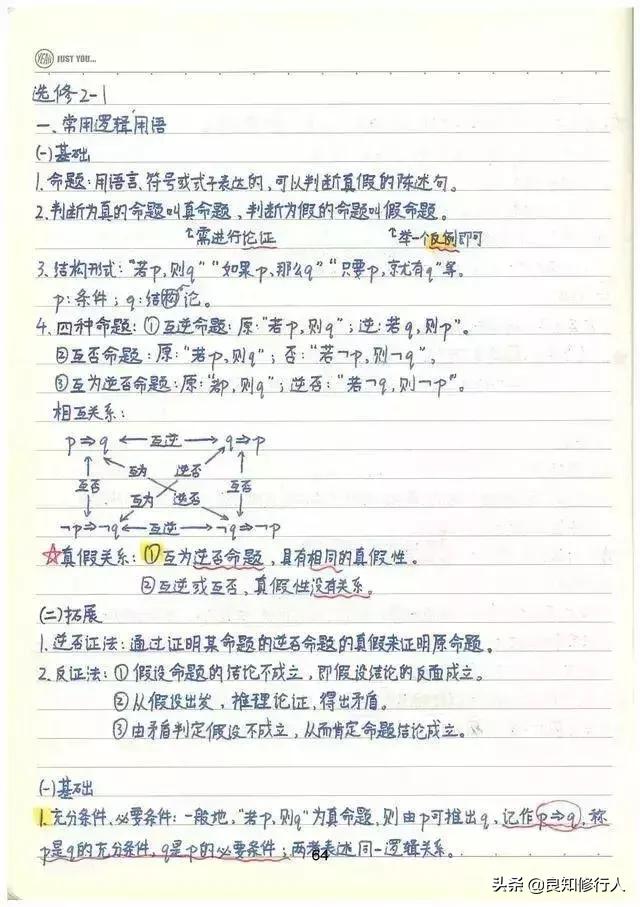 YEAH JUST YOU...
选修2-1
一、常用逻辑用语
(一)基础
1.命题:用语言、符号或式子表达的,可以判断真假的陈述句。
2.判断为真的命题叫真命题,判断为假的命题叫假命题。
↑需进行论证 ↑举一个反例即可
3.结构形式:“若p,则q”“如果p,那么q”“只要p,就有q”等。
p:条件;q:结论。
4.四种命题:①互逆命题:原:“若p,则q”;逆:若q,则p”。
②互否命题:原:“若p,则q”;否:“若¬p,则¬q”。
③互为逆否命题:原:“若p,则q”;逆否:“若¬q,则¬p”。
相互关系:
p⇒q ←互逆→ q⇒p
互为 逆否
互否 互否
互为 逆否
¬p⇒¬q ←互逆→ ¬q⇒¬p
☆真假关系:①互为逆否命题,具有相同的真假性。
②互逆或互否,真假性没有关系。
(二)拓展
1.逆否证法:通过证明某命题的逆否命题的真假来证明原命题。
2.反证法:①假设命题的结论不成立,即假设结论的反面成立。
②从假设出发,推理论证,得出矛盾。
③由矛盾判定假设不成立,从而肯定命题结论成立。
(一)基础
1.充分条件、必要条件:一般地,“若p,则q”为真命题,则由p可推出q,记作p⇒q,称
p是q的充分条件,q是p的必要条件;两者表述同一逻辑关系。
64
头条 @良知修行人